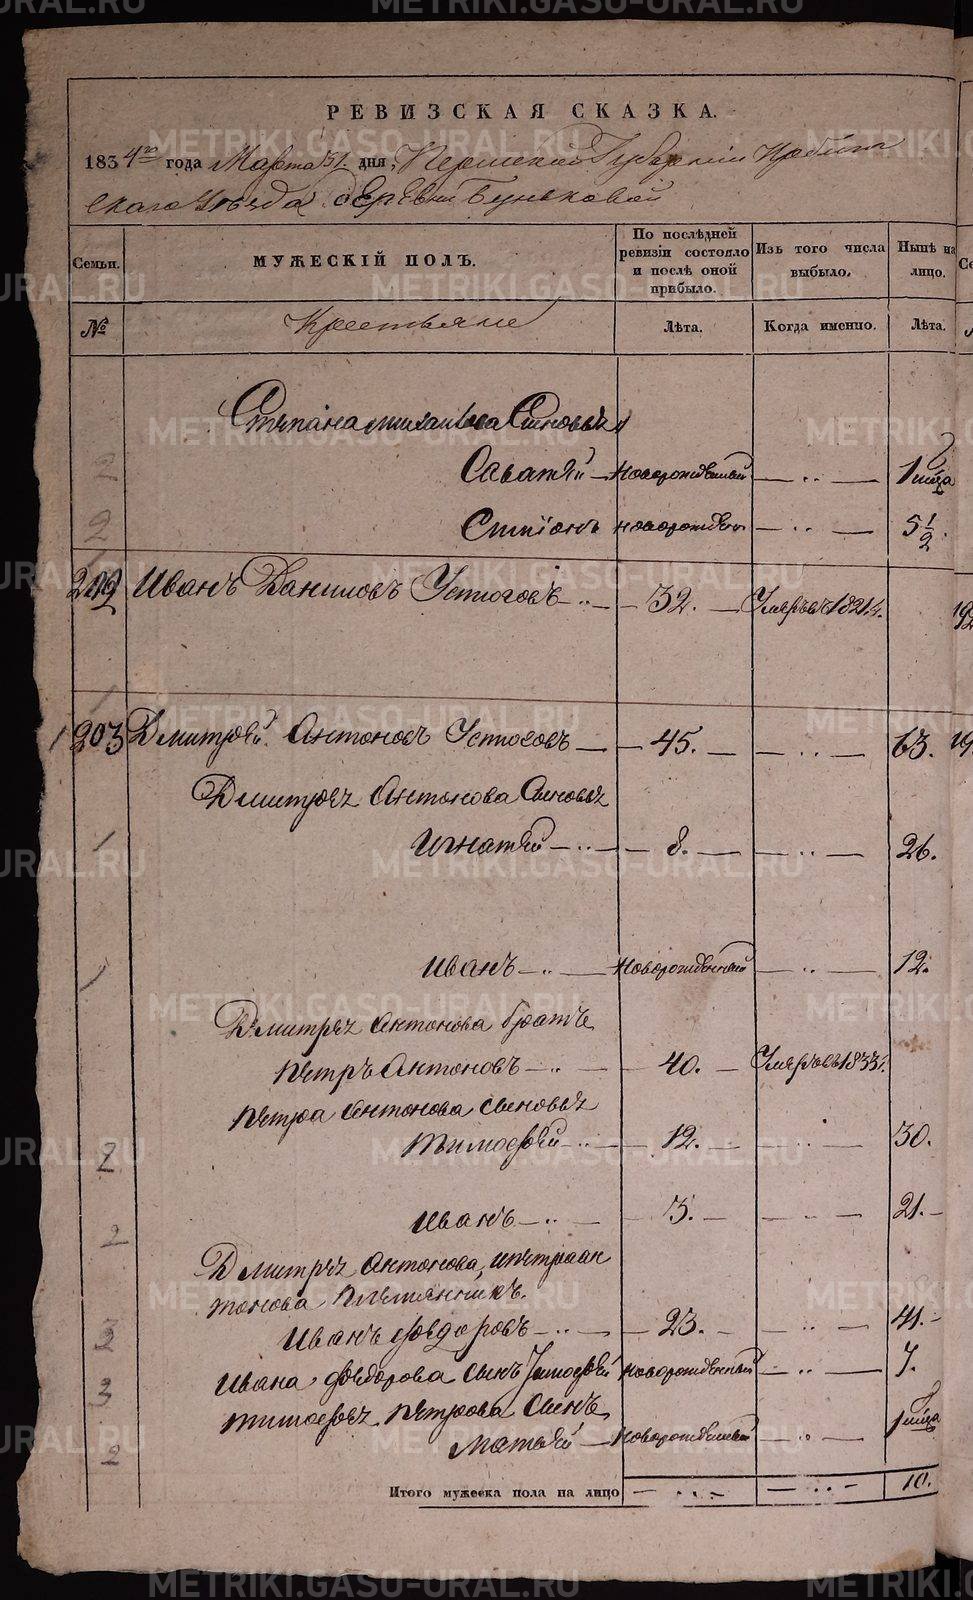 РЕВИЗСКАЯ СКАЗКА.
1834го года Марта 31 дня, Пермской Губернии Ирбит
скаго Уезда деревни Буньковой
Семьи. МУЖЕСКІЙ ПОЛЪ. По послѣдней ревизіи состояло и послѣ оной прибыло. Изъ того числа выбыло. Нынѣ на лицо.
№ Крестьяне Лѣта. Когда именно. Лѣта.
Степана Михайлова Сыновья
2 Саватѣй — новорожденный — „ — 1 мѣца
2 Симіонъ новорожден — „ — 5 1/2
202 Иванъ Даниловъ Устюговъ — „ — 32. — Умеръ въ 1821.
203 Дмитрѣй Антоновъ Устюговъ — 45. — „ — 63.
Дмитрѣя Антонова Сыновья
1 Игнатѣй — „ — 8. — „ — 26.
1 Иванъ — „ — Новорожденный — „ — 12.
Дмитрея Антонова братъ
Петръ Антоновъ — „ — 40. — Умеръ въ 1833.
Петра Антонова сыновья
2 Тимофѣй — „ — 12. „ — 30.
2 Иванъ — „ — 3. — „ — 21. —
Дмитрея Антонова, и Петра Ан
тонова племянникъ.
3 Иванъ Федоровъ — „ — 23. — „ — 41. —
3 Ивана Федорова сынъ Тимофѣй новорожденный — „ — 7.
Тимофея Петрова Сынъ
2 Матвѣй — Новорожденный — „ — 1 мѣца
Итого мужеска пола на лицо — „ — — „ — 10.